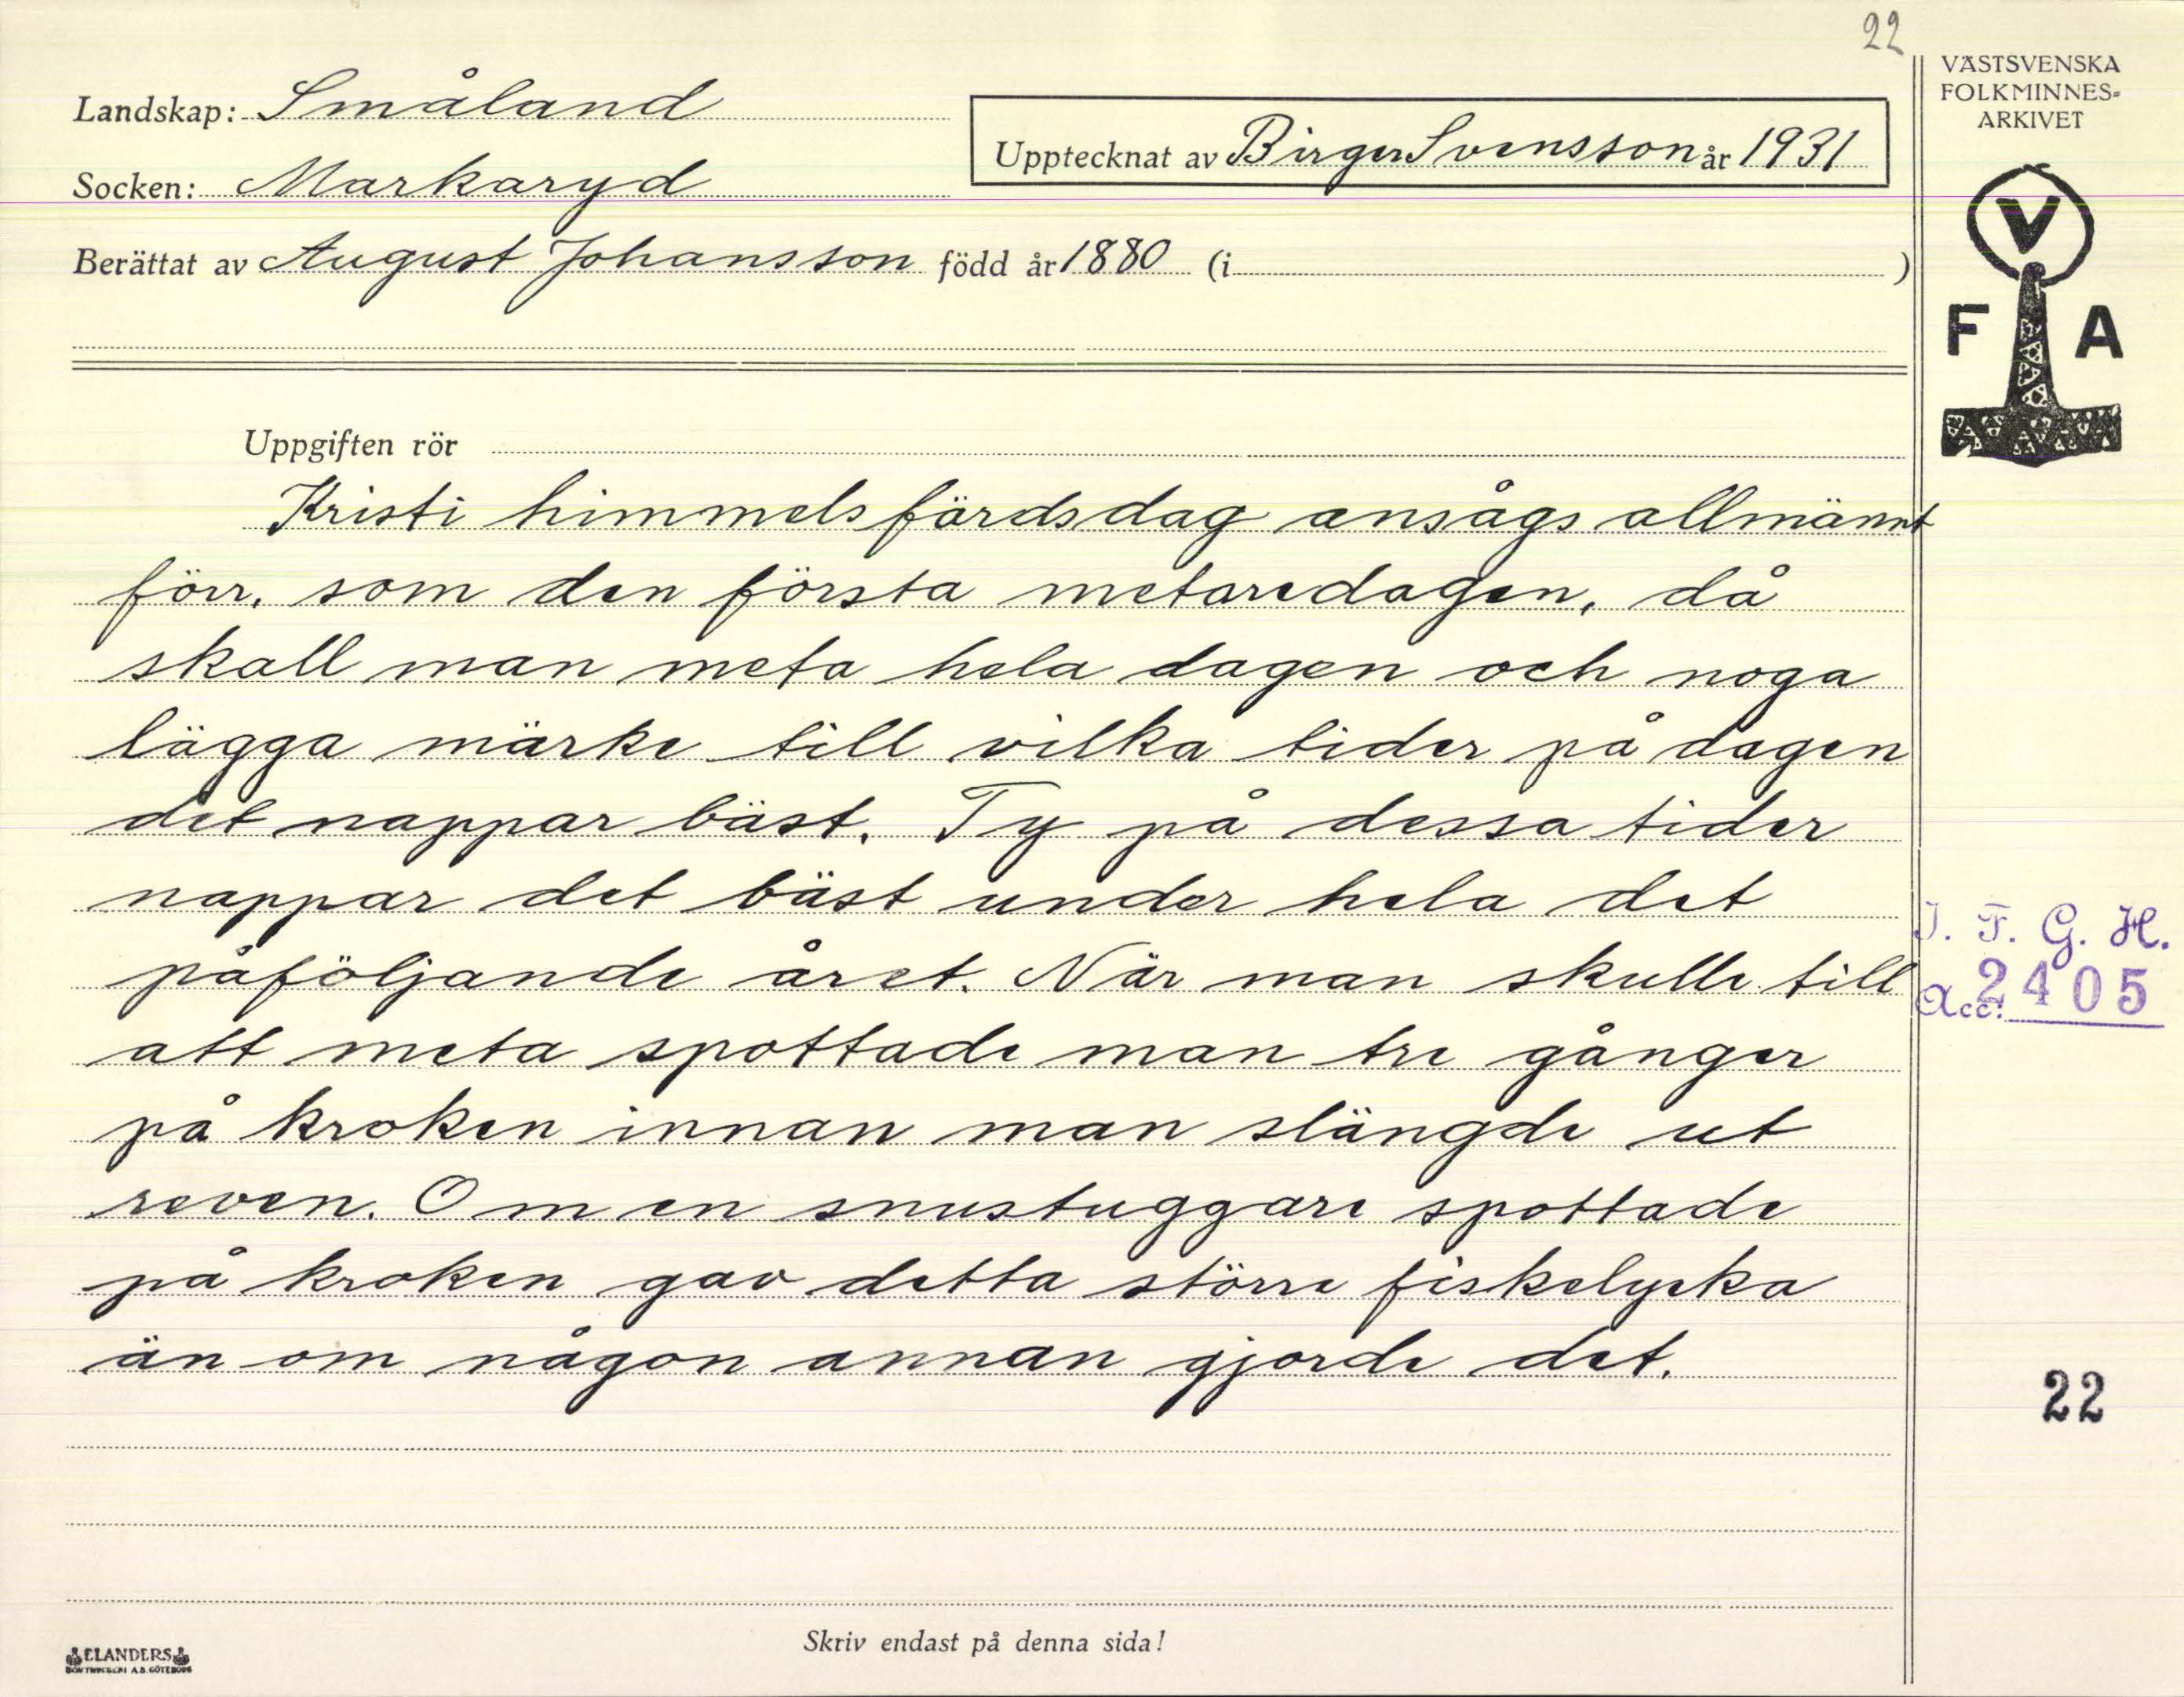 22
VÄSTSVENSKA
FOLKMINNES-
ARKIVET
Landskap: Småland
Upptecknat av Birger Svensson år 1931
Socken: Markaryd
Berättat av August Johansson född år 1880 (i )
V
F A
Uppgiften rör
Kristi himmelsfärdsdag ansågs allmännt
förr, som den första metaredagen, då
skall man meta hela dagen och noga
lägga märke till vilka tider på dagen
det nappar bäst. Ty på dessa tider
nappar det bäst under hela det
påföljande året. När man skulle till
att meta spottade man tre gånger
på kroken innan man slängde ut
reven. Om en snustuggare spottade
på kroken gav detta större fiskelycka
än om någon annan gjorde det.
I. F. G. H.
Acc: 2405
22
Skriv endast på denna sida!
ELANDERS
BOKTRYCKERI A.B. GÖTEBORG